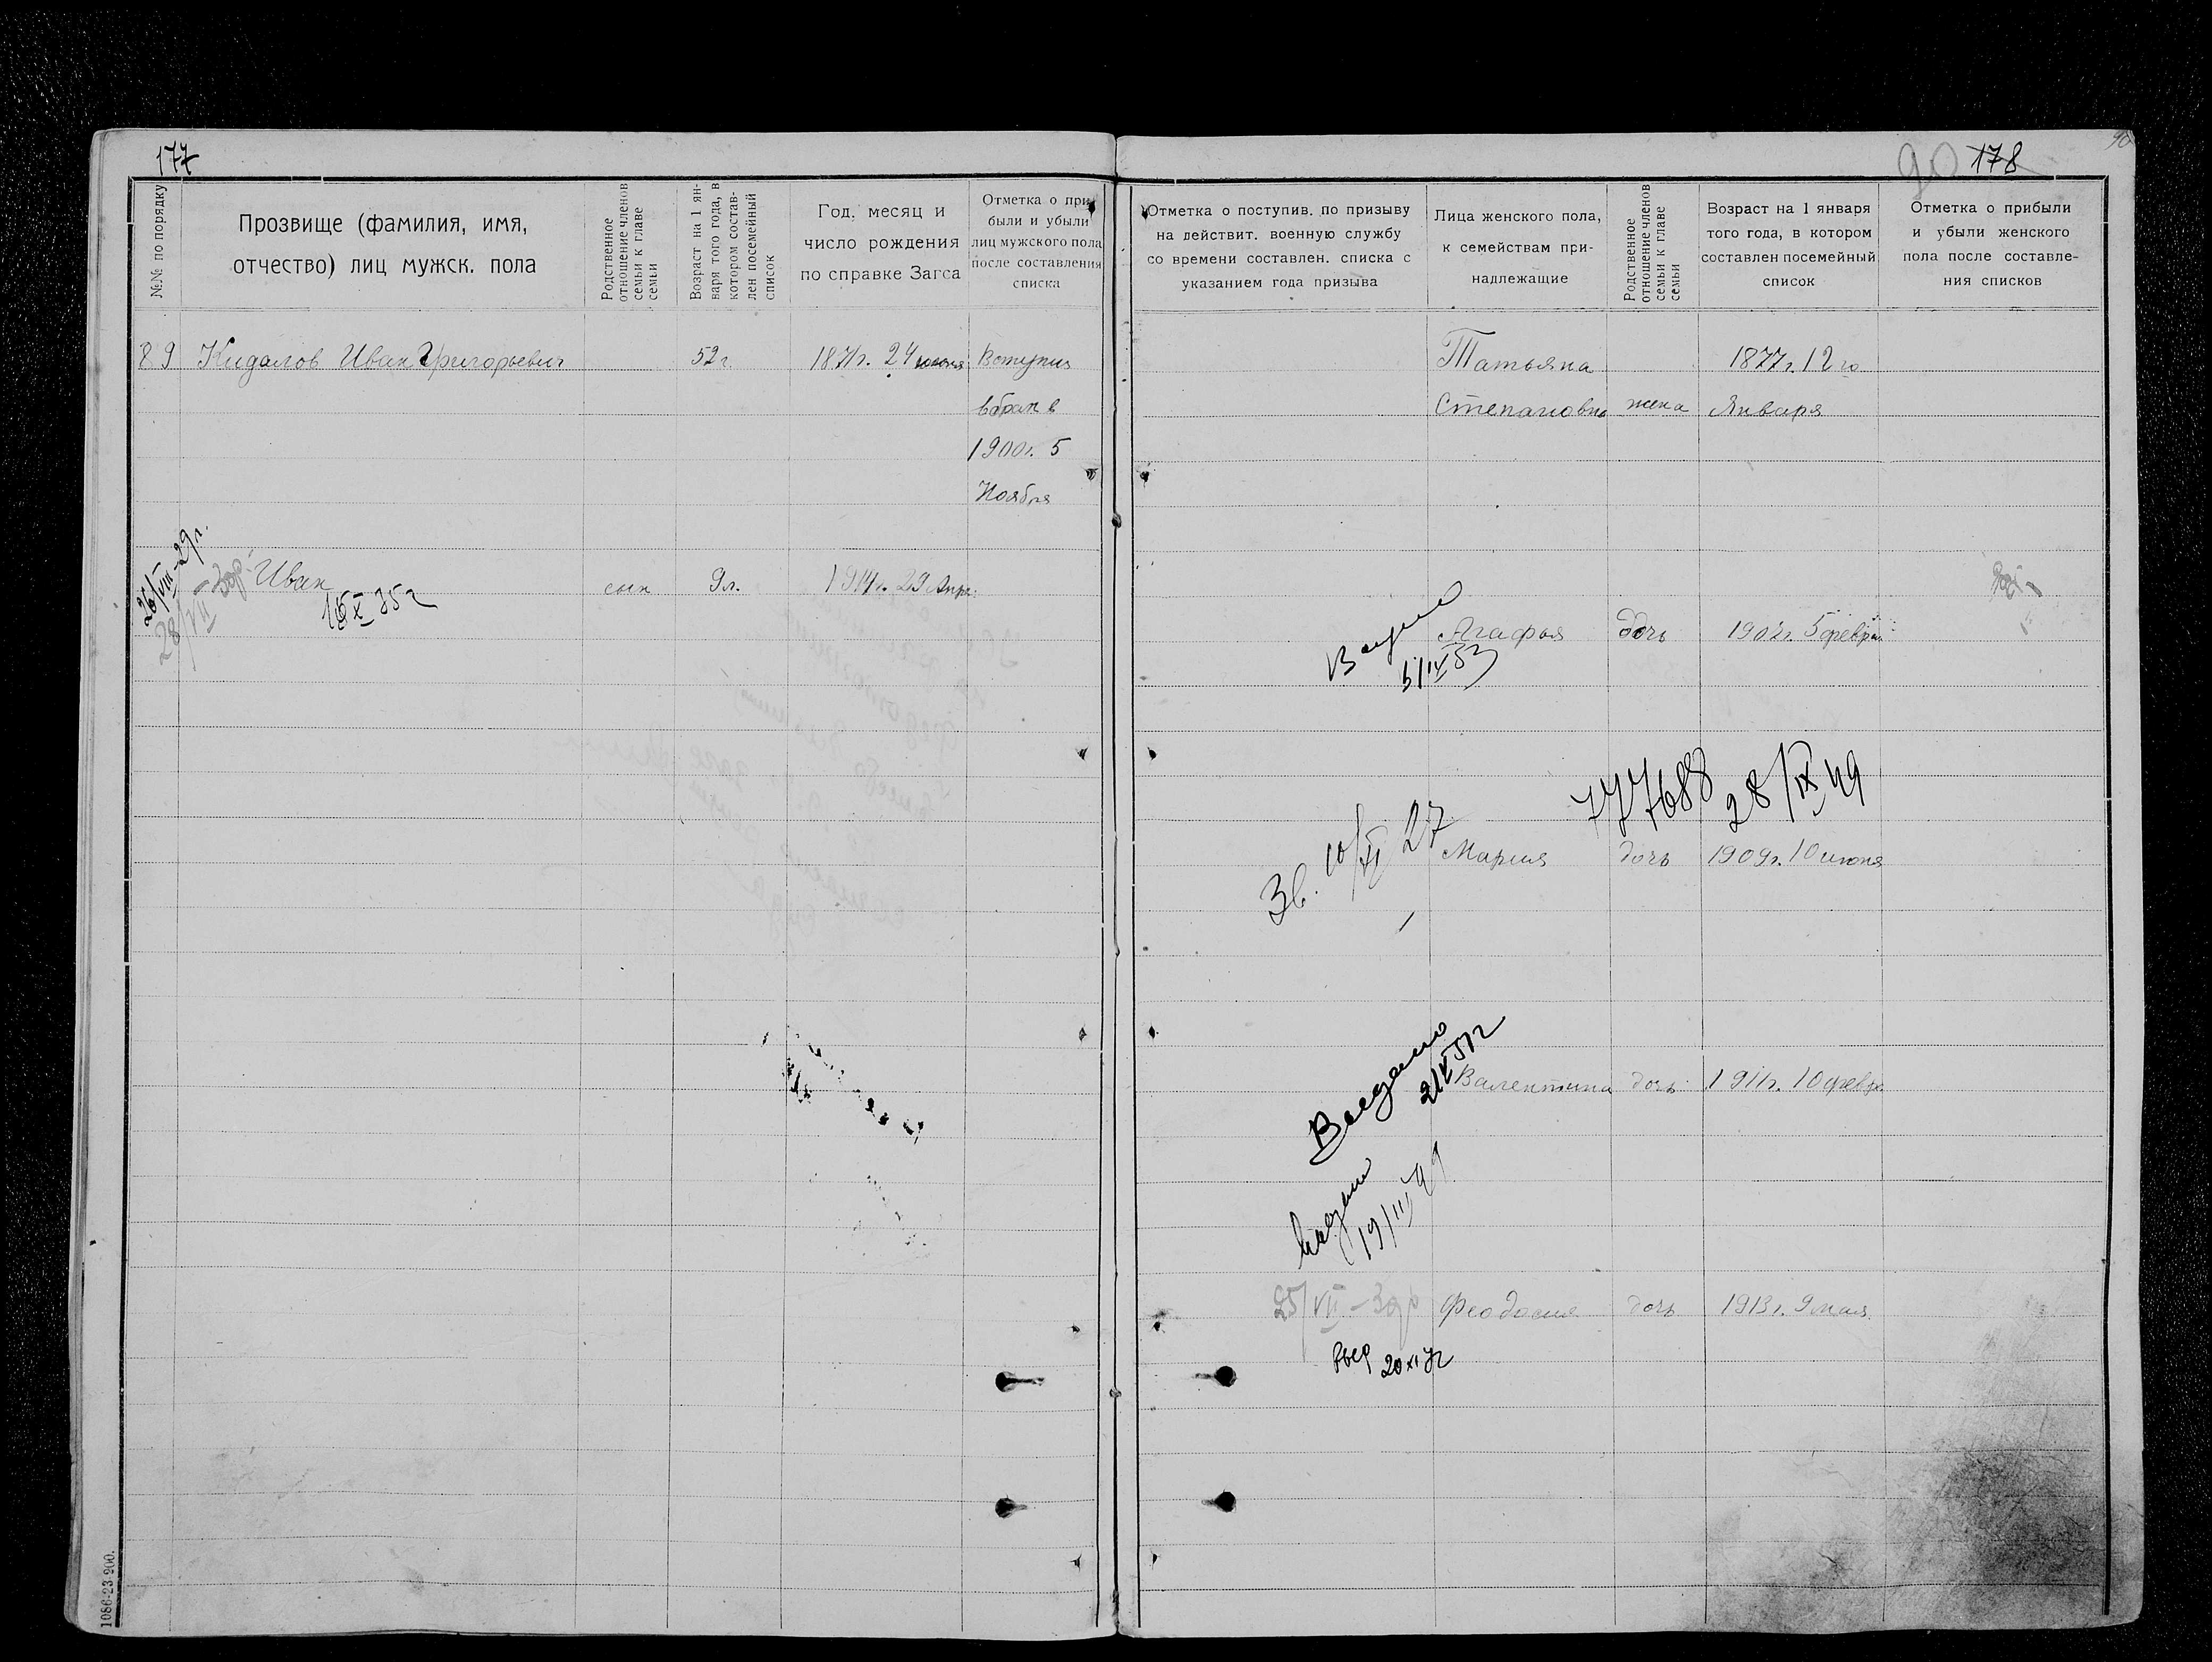 177
№№ по порядку
Прозвище (фамилия, имя,
отчество) лиц мужск. пола
Родственное
отношение членов
семьи к главе
семьи
Возраст на 1 ян-
варя того года, в
котором состав-
лен посемейный
список
Год, месяц и
число рождения
по справке Загса
Отметка о при
были и убыли
лиц мужского пола
после составления
списка
89 Кидалов Иван Григорьевич 52 г. 1871г. 24 июня Вступил
в брак в
1900г. 5
Ноября
26/VIII-29г.
28/VII
Иван сын 9л. 1914г. 29 Апр.
16 X 35г
1086-23-900.
90 178
90
Отметка о поступив. по призыву
на действит. военную службу
со времени составлен. списка с
указанием года призыва
Лица женского пола,
к семействам при-
надлежащие
Родственное
отношение членов
семьи к главе
семьи
Возраст на 1 января
того года, в котором
составлен посемейный
список
Отметка о прибыли
и убыли женского
пола после составле-
ния списков
Татьяна 1877г. 12го
Степановна жена Января
Агафья дочь 1902г. 5 февра.
5/IV 53
777688 28/IX 49
Зв. 10/XI 27
Мария дочь 1909г. 10 июня
Выдано
21/V 51г
Валентина дочь 1911г. 10 февр
19/III 49
25/VII-30г Феодосия дочь 1913г. 9 мая
Выд 20 XI